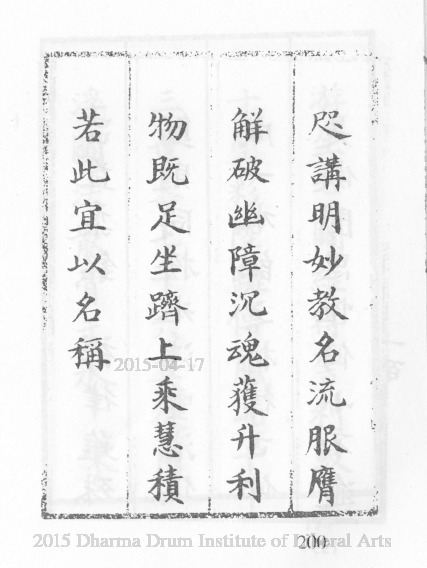 咫講明妙教名流服膺
解破幽障沉魂獲升利
物既足坐躋上乘慧積
若此宜以名稱
2015-04-17
2015 Dharma Drum Institute of Liberal Arts
200